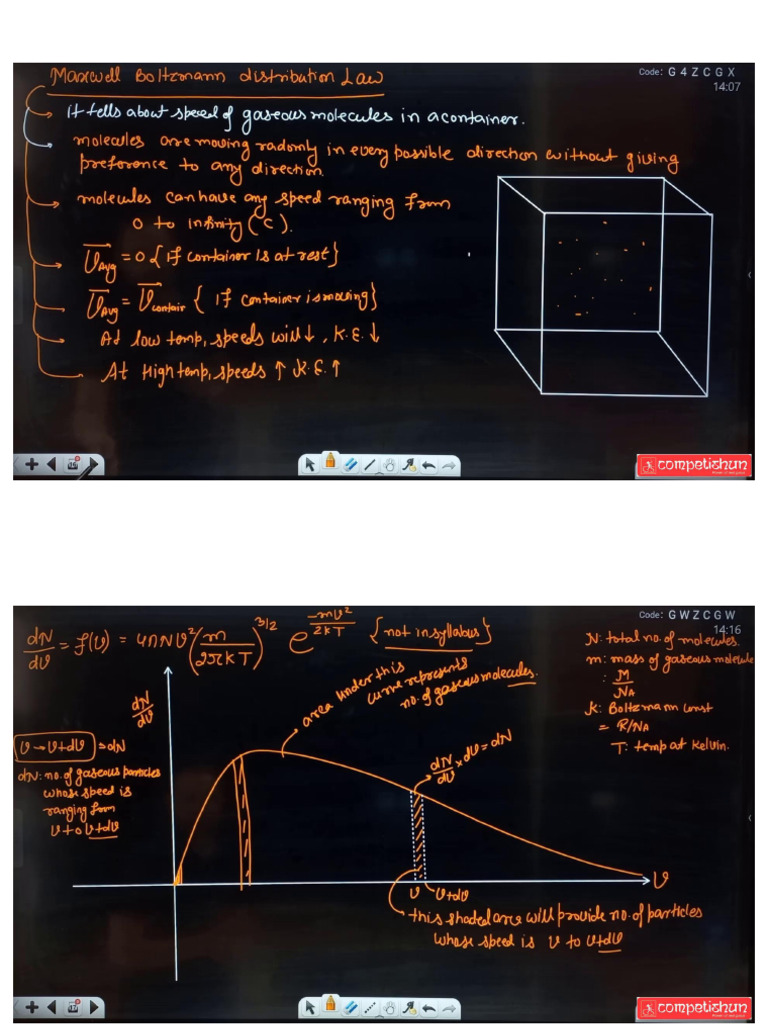 Maxwell Boltzmann distribution Law
Code: G4ZCGX
14:07
it tells about speed of gaseous molecules in a container.
molecules are moving radomly in every possible direction without giving
preference to any direction.
molecules can have any speed ranging from
0 to infinity (c).
V⃗Avg = 0 { If container is at rest}
V⃗Avg = V⃗contair { if container is moving}
At low temp, speeds will ↓, K.E. ↓
At High temp, speeds ↑ K.E. ↑
competishun
Code: GWZCGW
14:16
dN/dv = f(v) = 4πNv² (m/2πkT)^3/2 e^(-mv²/2kT) {not in syllabus}
N: total no. of molecules.
m: mass of gaseous molecule
: M/NA
K: Boltzmann const
= R/NA
T: temp at kelvin.
area under this
curve represents
no. of gaseous molecules.
dN/dv
v → v+dv = dN
dN: no. of gaseous particles
whose speed is
ranging from
v to v+dv
dN/dv × dv = dN
v v+dv v
this shaded area will provide no. of particles
whose speed is v to v+dv
competishun